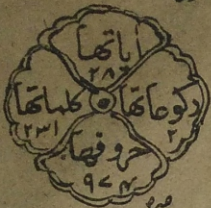 اياتها
٢٨
ركوعاتها
٢
كلماتها
٢٣١
حروفها
٩٧٤